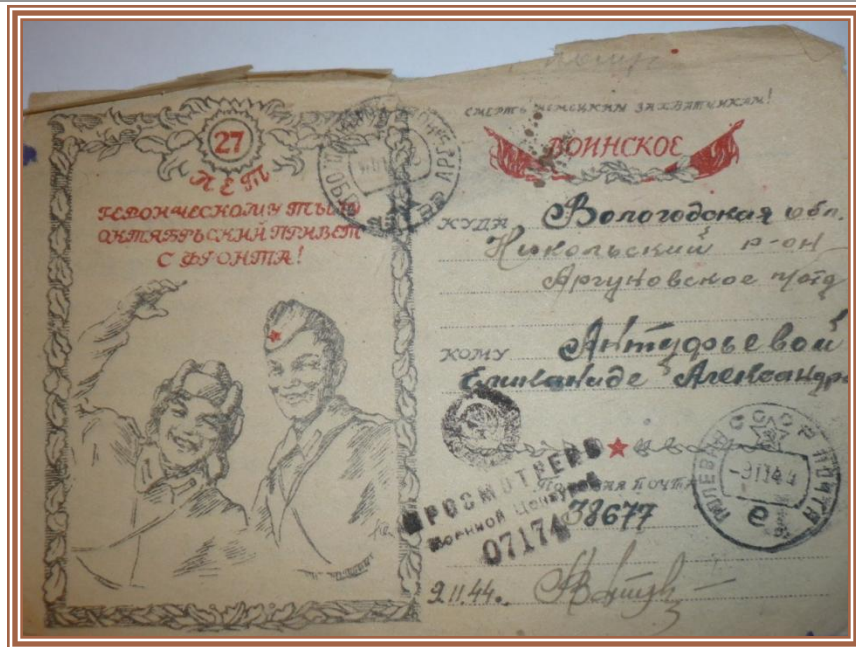 27
ЛЕТ
ГЕРОИЧЕСКОМУ ТЫЛУ
ОКТЯБРЬСКИЙ ПРИВЕТ
С ФРОНТА!
СМЕРТЬ НЕМЕЦКИМ ЗАХВАТЧИКАМ!
ВОИНСКОЕ
КУДА Вологодская обл.
Никольский р-он
Аргуновское п/отд
КОМУ Антуфьевой
Александр
ПРОСМОТРЕНО
Военной Цензурой
07174
ПОЛЕВАЯ ПОЧТА
38677
СССР
ПОЛЕВАЯ ПОЧТА
-9 11 44
9.11.44.